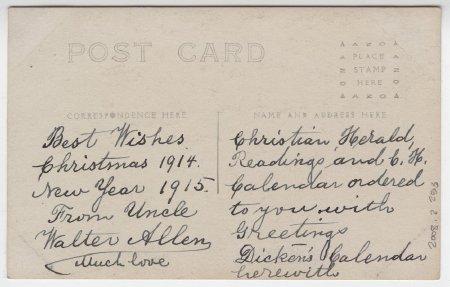 POST CARD
AZKO
PLACE
STAMP
HERE
AZKO
CORRESPONDENCE HERE
NAME AND ADDRESS HERE
Best Wishes
Christmas 1914.
New Year 1915.
From Uncle
Walter Allen
Much love
Christian Herald,
Readings, and C. H.
Calendar ordered
to you with
Greetings
Dicken's Calendar
herewith
2008. 2 266